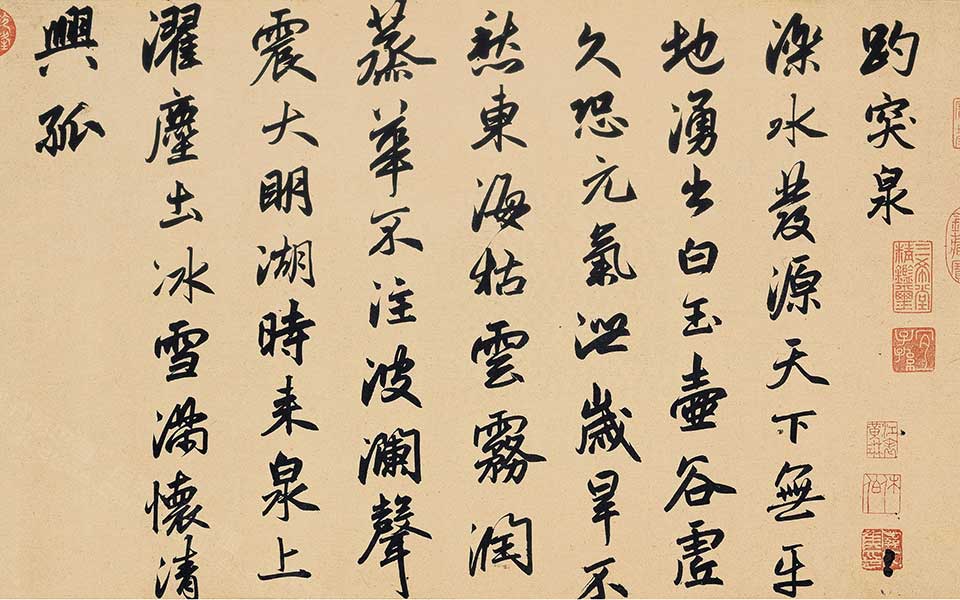 趵突泉
濼水發源天下無平
地湧出白玉壺谷虛
久恐元氣洩歲旱不
愁東海枯雲霧潤
蒸華不注波瀾聲
震大明湖時來泉上
濯塵土冰雪滿懷清
興孤
三希堂
精鑑璽
宜
子孫